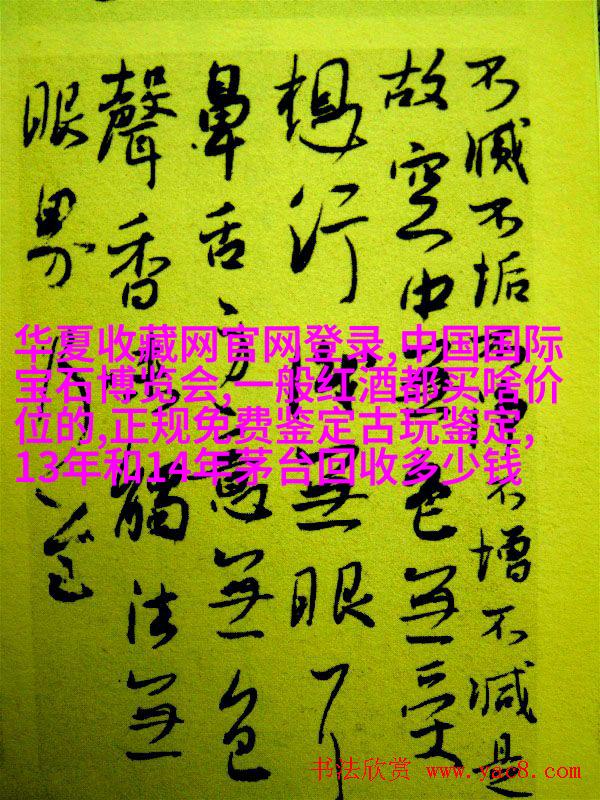 不減不垢不增不減是
故空中無色無受
想行識無眼耳
鼻舌身意無色
聲香味觸法無
眼界乃
华夏收藏网官网登录,中国国际
宝石博览会,一般红酒都买啥价
位的,正规免费鉴定古玩鉴定,
13年和14年茅台回收多少钱
书法欣赏 www.yac8.com